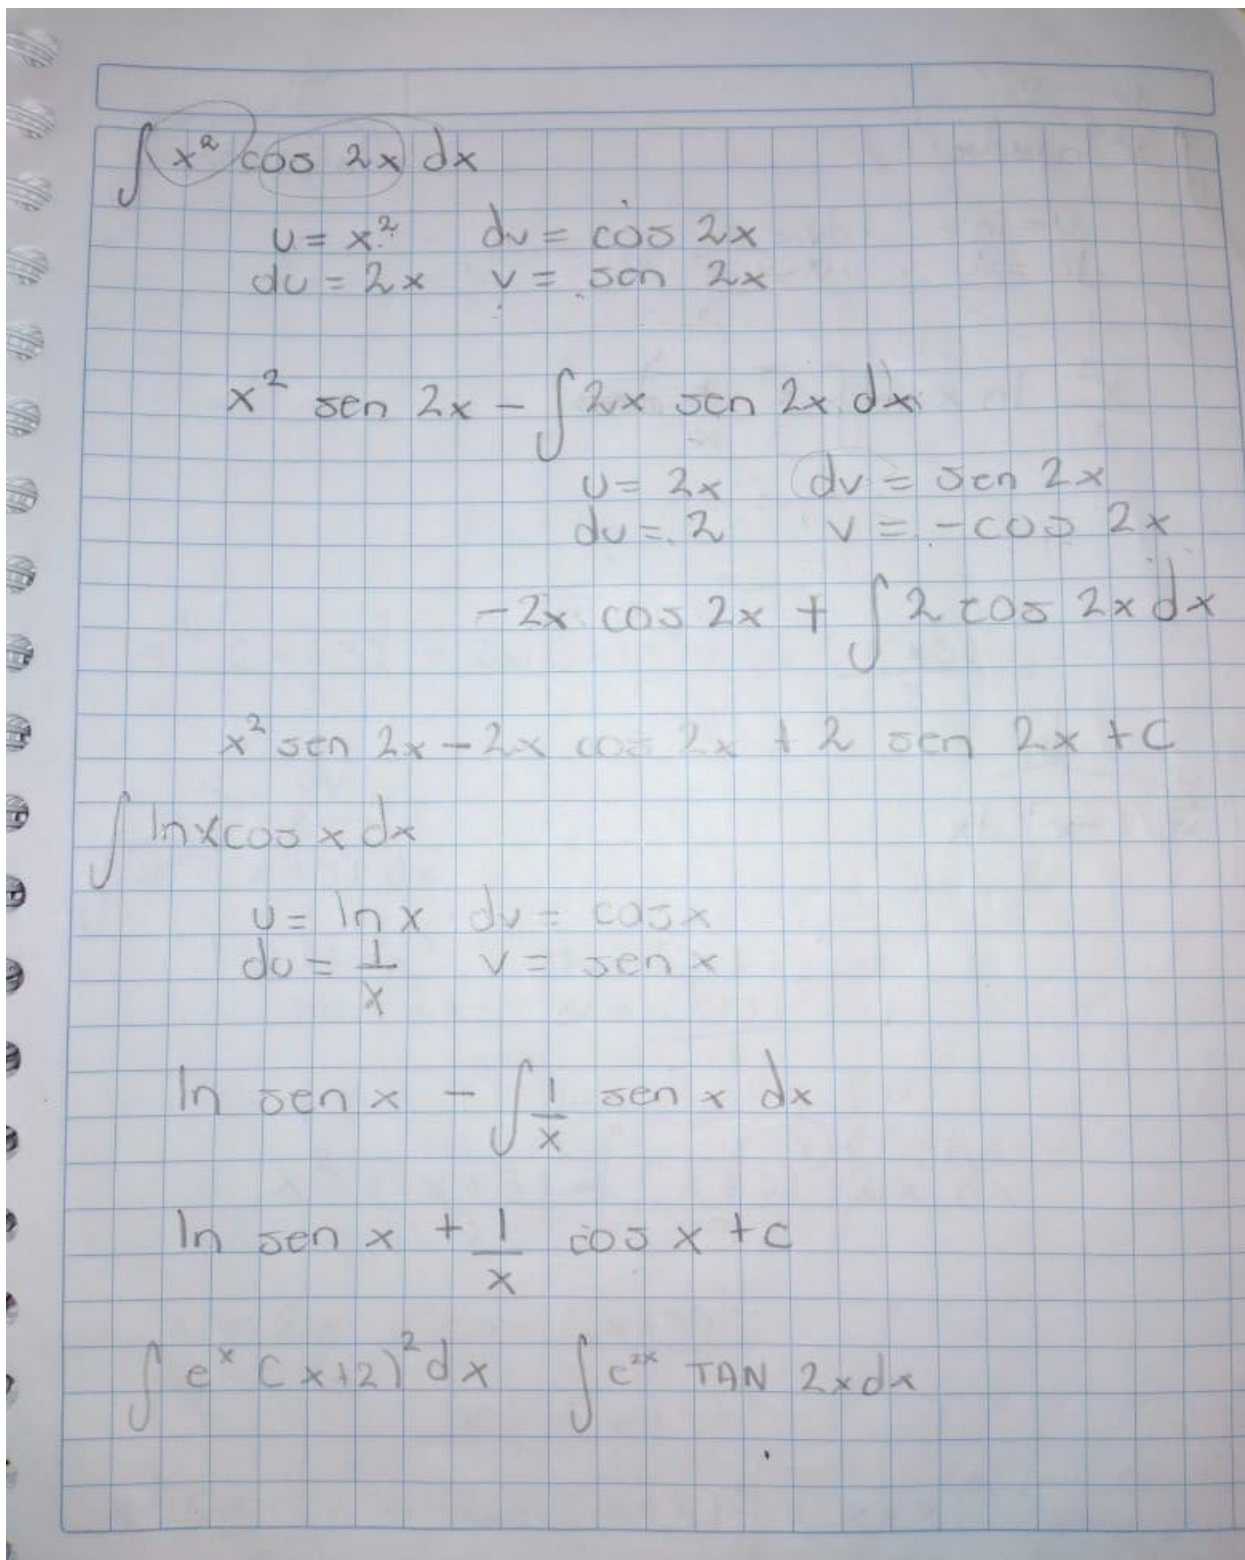 ∫ x² cos 2x dx
u = x² dv = cos 2x
du = 2x v = sen 2x
x² sen 2x - ∫ 2x sen 2x dx
u = 2x dv = sen 2x
du = 2 v = -cos 2x
-2x cos 2x + ∫ 2 cos 2x dx
x² sen 2x - 2x cos 2x + 2 sen 2x + c
∫ ln x cos x dx
u = ln x dv = cos x
du = 1/x v = sen x
ln sen x - ∫ 1/x sen x dx
ln sen x + 1/x cos x + c
∫ eˣ (x+2)² dx ∫ e²ˣ TAN 2x dx